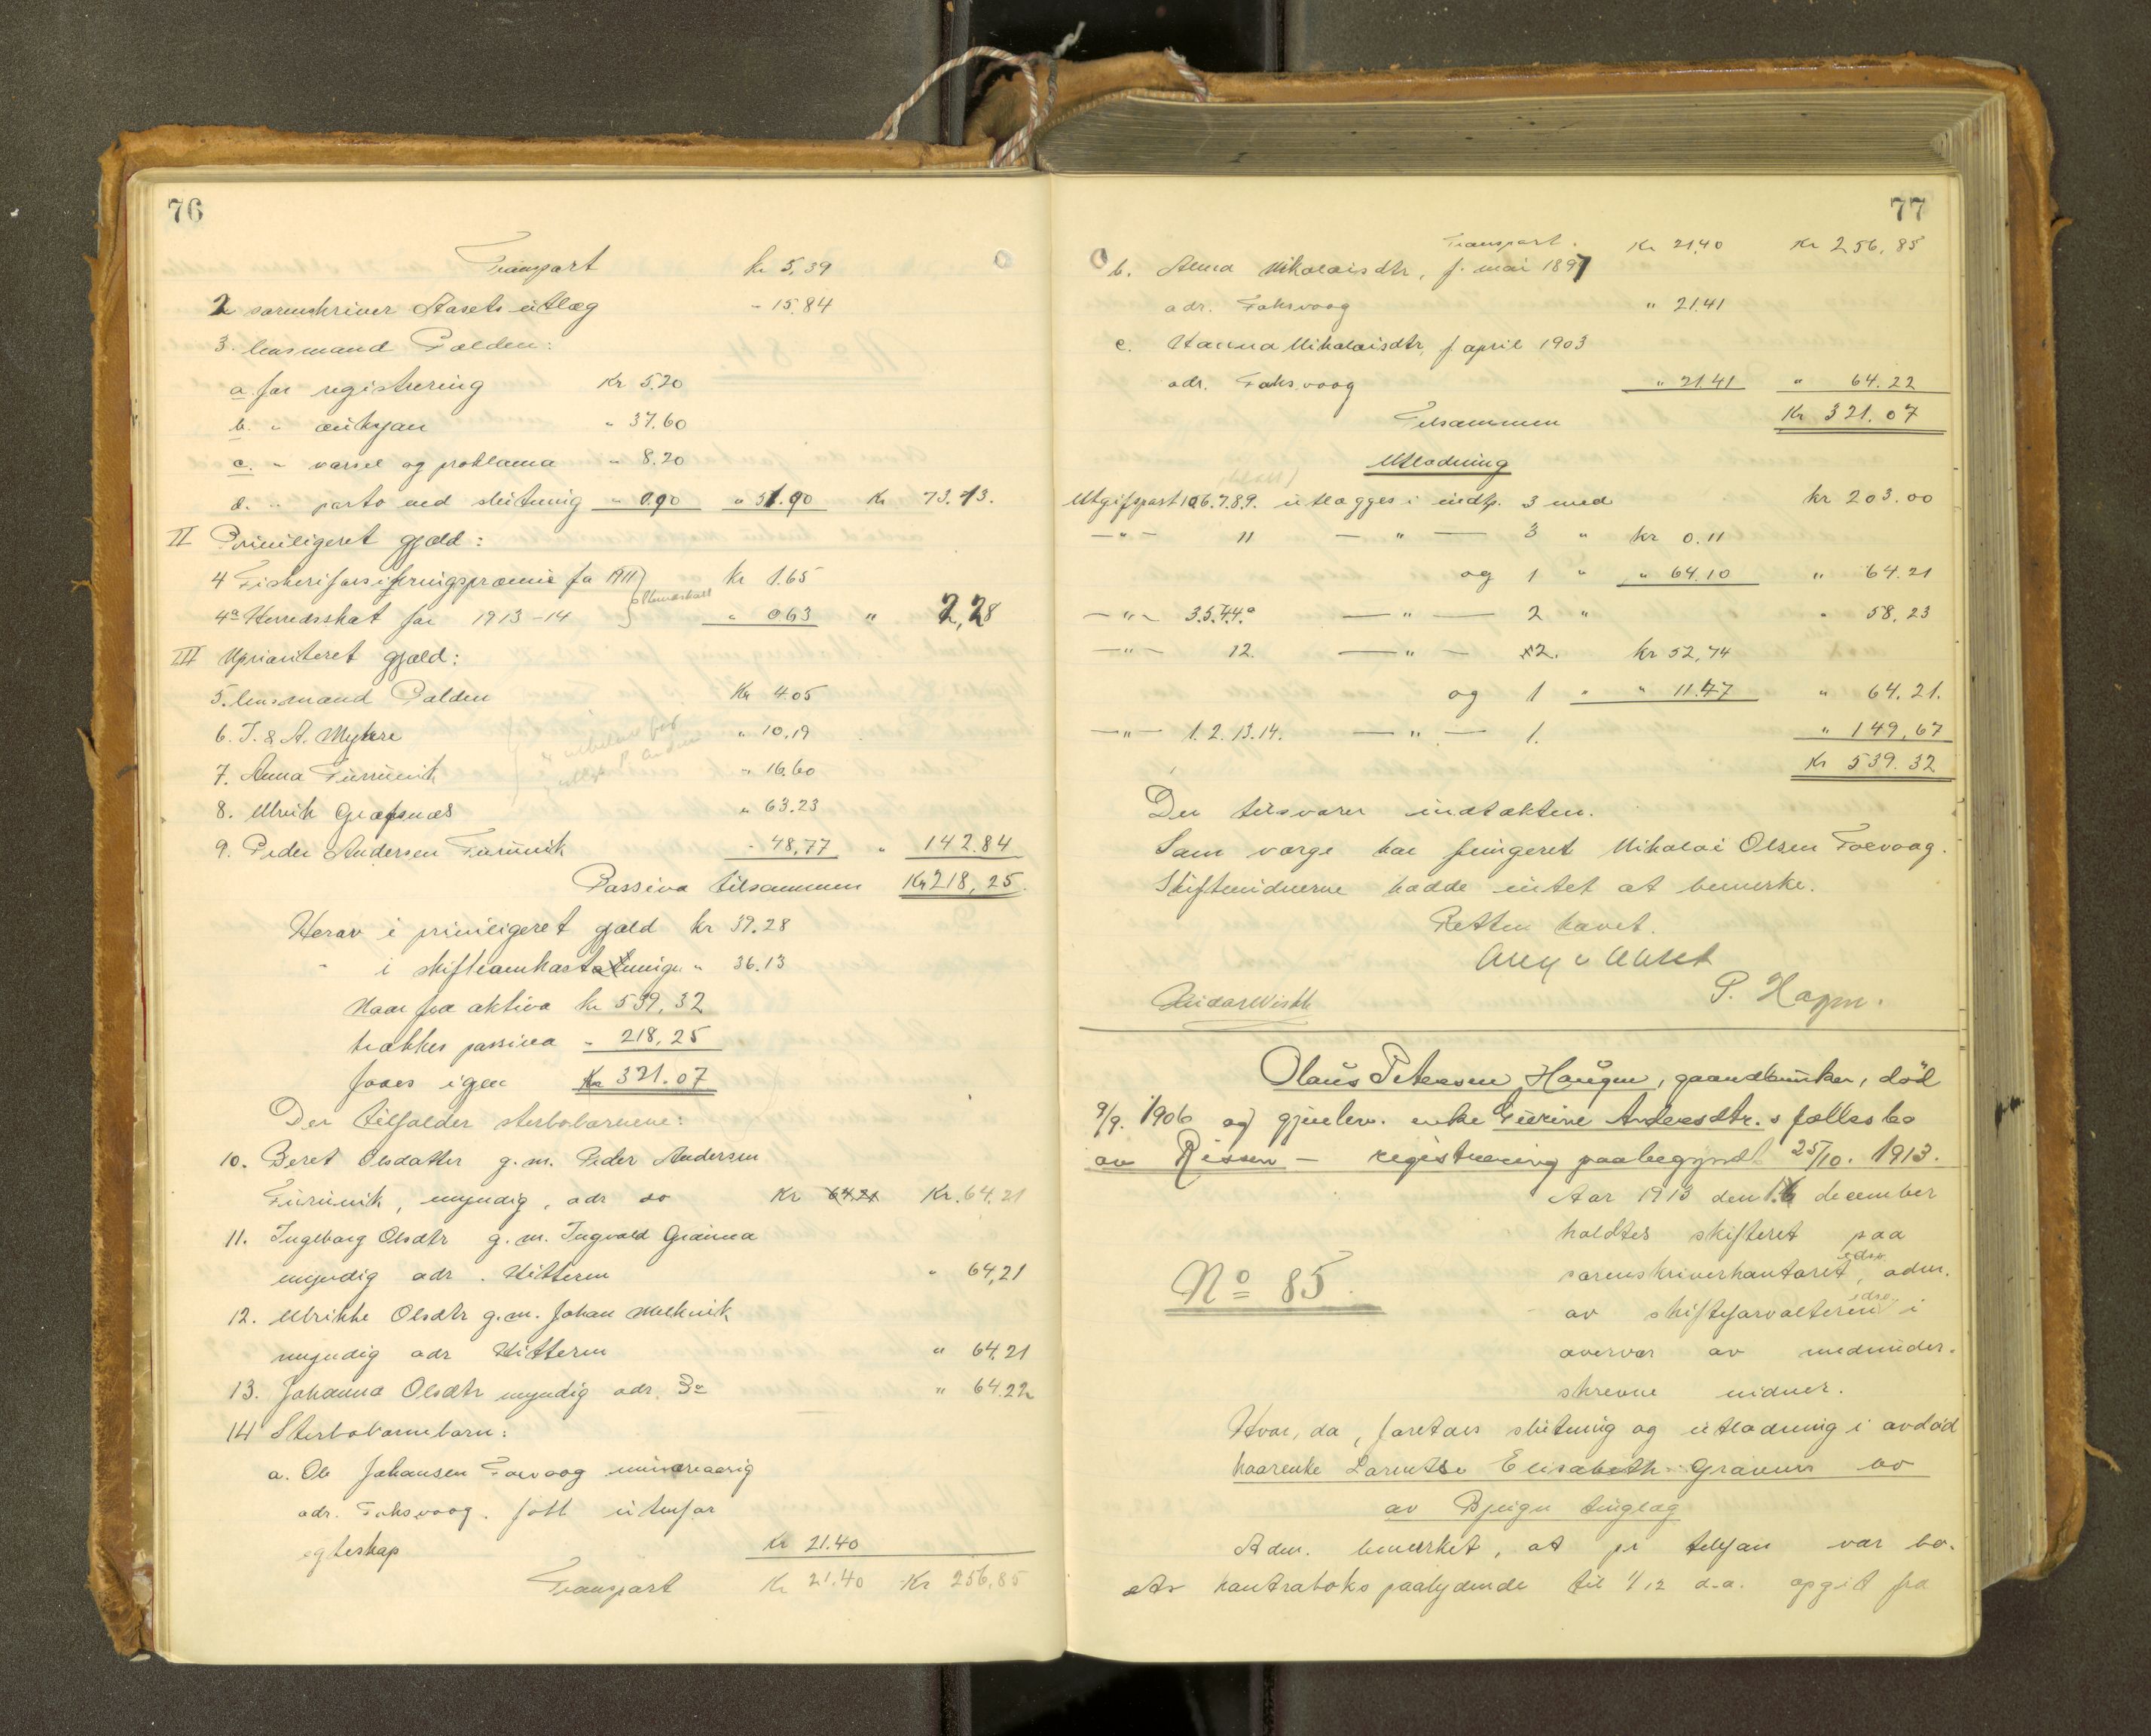 76
Transport kr 5.39
2 sorenskriver Aasets utlæg " 15.84
3. lensmand Palden:
a for registrering kr 5.20
b. " auksjon " 37.60
c. " varsel og proklama " 8.20
d. " porto ved slutning " 0.90 " 51.90 kr 73.13.
II Priviligeret gjæld:
4 Fiskeriforsikringspræmie for 1911 kr 1.65
4a Herredsskat for 1913-14 " 0.63 " 2,28
III Uprioriteret gjæld:
5. lensmand Palden kr 4.05
6. J. & A. Myhre " 10.19
7. Anna Furuvik " 16.60
8. Ulrik Græsnæs " 63.23
9. Peder Andersen Furuvik " 48,77 " 142.84
Passiva tilsammen Kr 218,25.
Herav i priviligeret gjæld kr 39.28
" i skifteomkostninger " 36.13
Naar fra aktiva kr 539,32
trækkes passiva " 218,25
faaes igjen Kr 321.07
Der tilfalder sterbobarnene:
10. Beret Olsdatter g.m. Peder Andersen
Furuvik, myndig, adr do Kr 64,21 Kr. 64,21
11. Ingeborg Olsdtr g.m. Ingvald Grønna
myndig adr. Hitteren " 64,21
12. Ulrikke Olsdtr g.m. Johan Melkvik
myndig adr Hitteren " 64,21
13. Johanna Olsdtr myndig adr. Do " 64.22
14 Sterbobarnebarn:
a. Ole Johansen Foevaag mindreaarig
adr. Foksvaag. født utenfor
egteskap kr 21.40
Transport Kr 21.40 Kr 256,85
77
Transport. Kr 21,40 Kr 256,85
b. Anna Nikolaisdtr, f. mai 1897
adr. Foksvoog " 21.41
c. Hanna Nikolaisdtr, f april 1903
adr. Foksvoog " 21.41 " 64.22
Tilsammen Kr 321.07
Utlodning
Utgiftspost 10.6.7.8.9. utlægges i indtp. 3 med kr 203.00
—"— 11 —"— 3 " kr 0.11
og 1 " " 64.10 " 64.21
—"— 3.5.4.4a —"— 2 " " 58,23
—"— 12. —"— 2. kr 52,74
og 1 " " 11.47 " 64.21.
—"— 1. 2. 13. 14. —"— 1. " 149,67
Kr 539.32
Der tilsvarer indtækten.
Som værge har fungeret Nikolai Olsen Foevaag.
Skiftevidnerne hadde intet at bemerke.
Retten hævet.
P. Hagen.
Olaus Petersen Haugen, gaardbruker, død
9/9. 1906 og gjenlev. enke Gurine Andersdtr.s fællesbo
av Rissen — registrering paabegyndt 25/10. 1913.
Aar 1913 den 16 december
holdtes skifteret paa
sorenskriverkontoret, edsv. adm.
av skifteforvalteren i
overvær av medunder-
skrevne vidner.
No 85.
Hvor, da, foretoes slutning og utlodning i avdød
kaarenke Larentse Elisabeth Grønnes bo
av Bjugn tinglag
Adm. bemerket, at pr telefon var bo-
ets kontrabok paalydende til 1/12 d.a. opgit fra